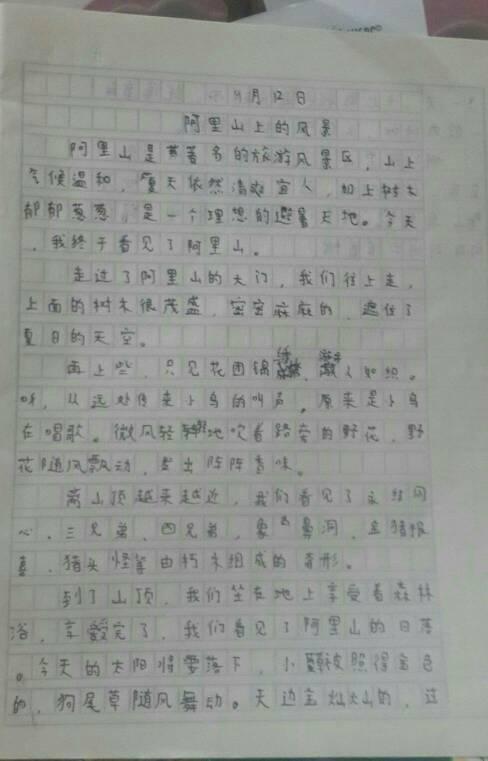 月12日
阿里山上的风景
阿里山是著名的旅游风景区,山上
气候温和,夏天依然清爽宜人,加上树木
郁郁葱葱,是一个理想的避暑天地。今天
,我终于看见了阿里山。
走过了阿里山的大门,我们往上走,
上面的树木很茂盛,密密麻麻的,遮住了
夏日的天空。
再上些,只见花团锦,人如织。
听,从远处传来小鸟的叫声。原来是小鸟
在唱歌。微风轻轻地吹着路旁的野花,野
花随风飘动,发出阵阵香味。
离山顶越来越近,我们看见了永结同
心,三兄弟,四兄弟,象鼻洞,金猪报
喜,猪头怪等由朽木组成的奇形。
到了山顶,我们坐在地上享受着森林
浴,享受完了,我们看见了阿里山的日落
。今天的太阳将要落下,小被照得金色
的,狗尾草随风舞动。天边金灿灿的,这